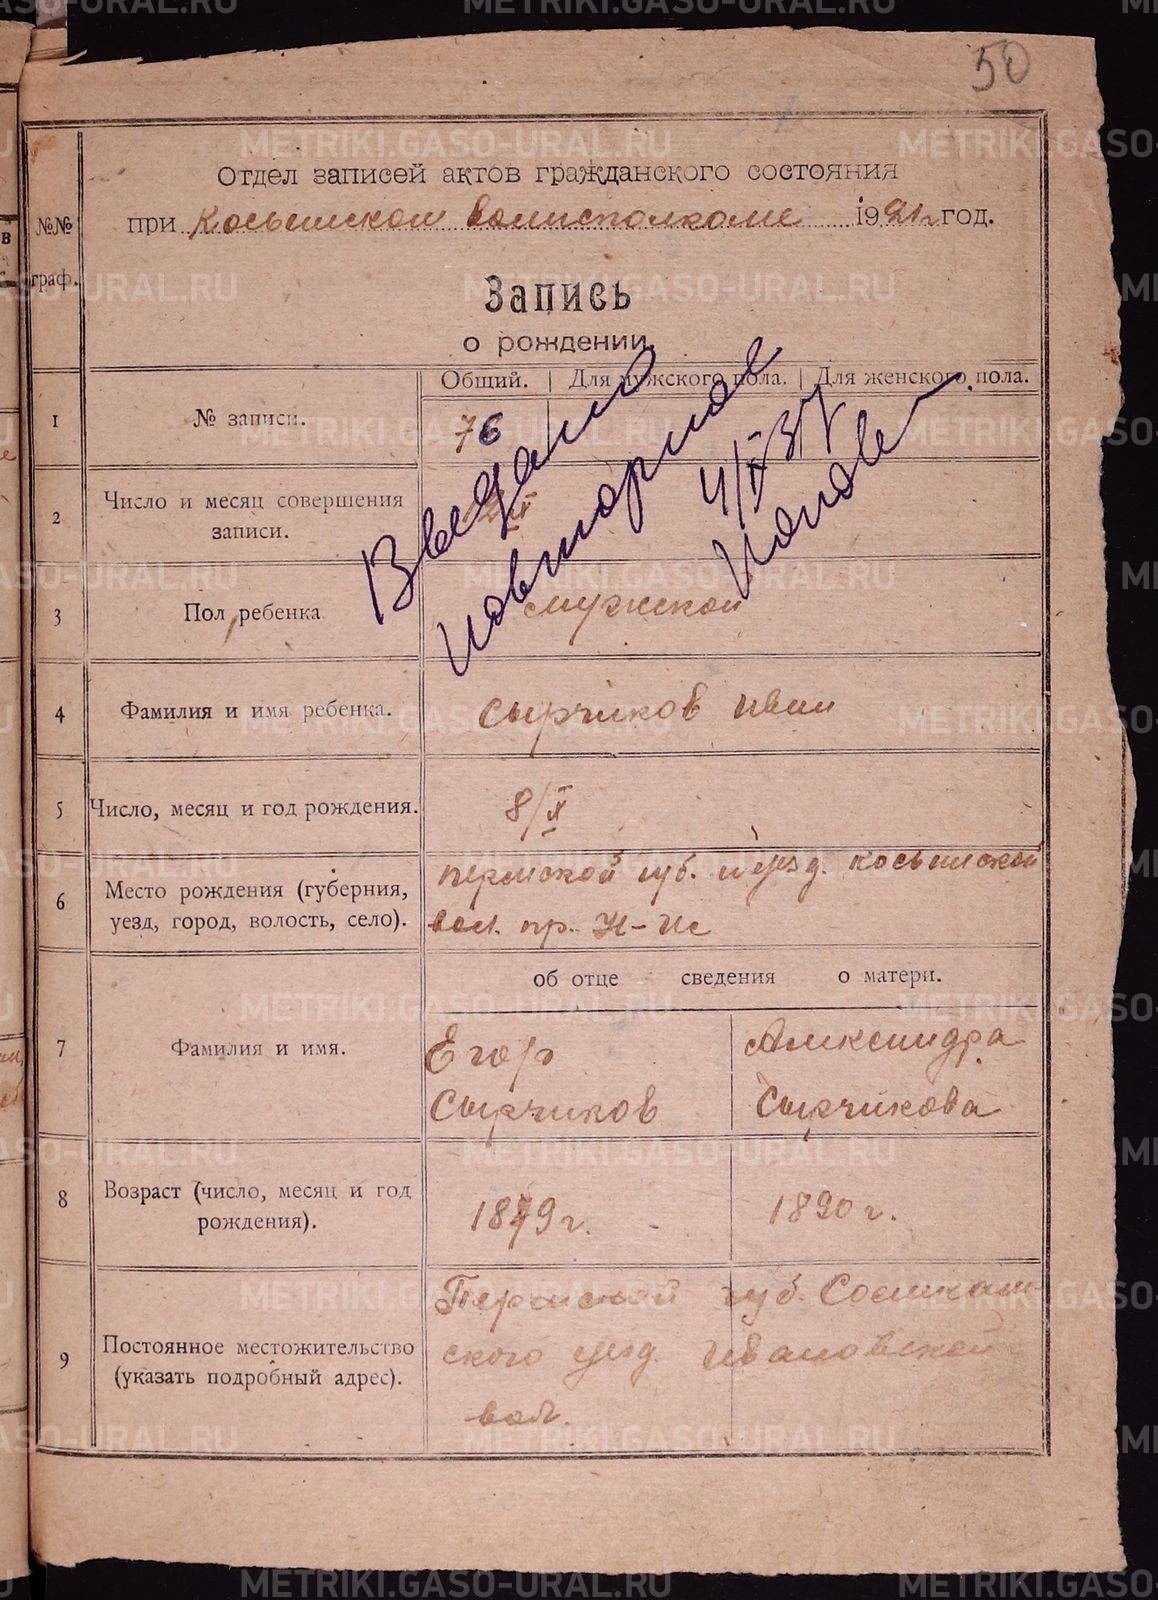 50
Отдел записей актов гражданского состояния
при Косьинском волисполкоме 1921 г год.
№№ граф.
Запись
о рождении.
Общий. | Для мужского пола. | Для женского пола.
1 № записи. 76
2 Число и месяц совершения
записи.
3 Пол ребенка мужской
Выдано
повторное
4 Фамилия и имя ребенка. Сырчиков Иван
5 Число, месяц и год рождения. 8/II
6 Место рождения (губерния,
уезд, город, волость, село).
пермской губ. и уезд. косьинской
вол. пр. Н-Ис
об отце сведения о матери.
7 Фамилия и имя.
Егор Александра
Сырчиков Сырчикова
8 Возраст (число, месяц и год
рождения).
1879 г. 1890 г.
9 Постоянное местожительство
(указать подробный адрес).
Пермской губ.
ского уезд. Ивановской
вол.
METRIKI.GASO-URAL.RU